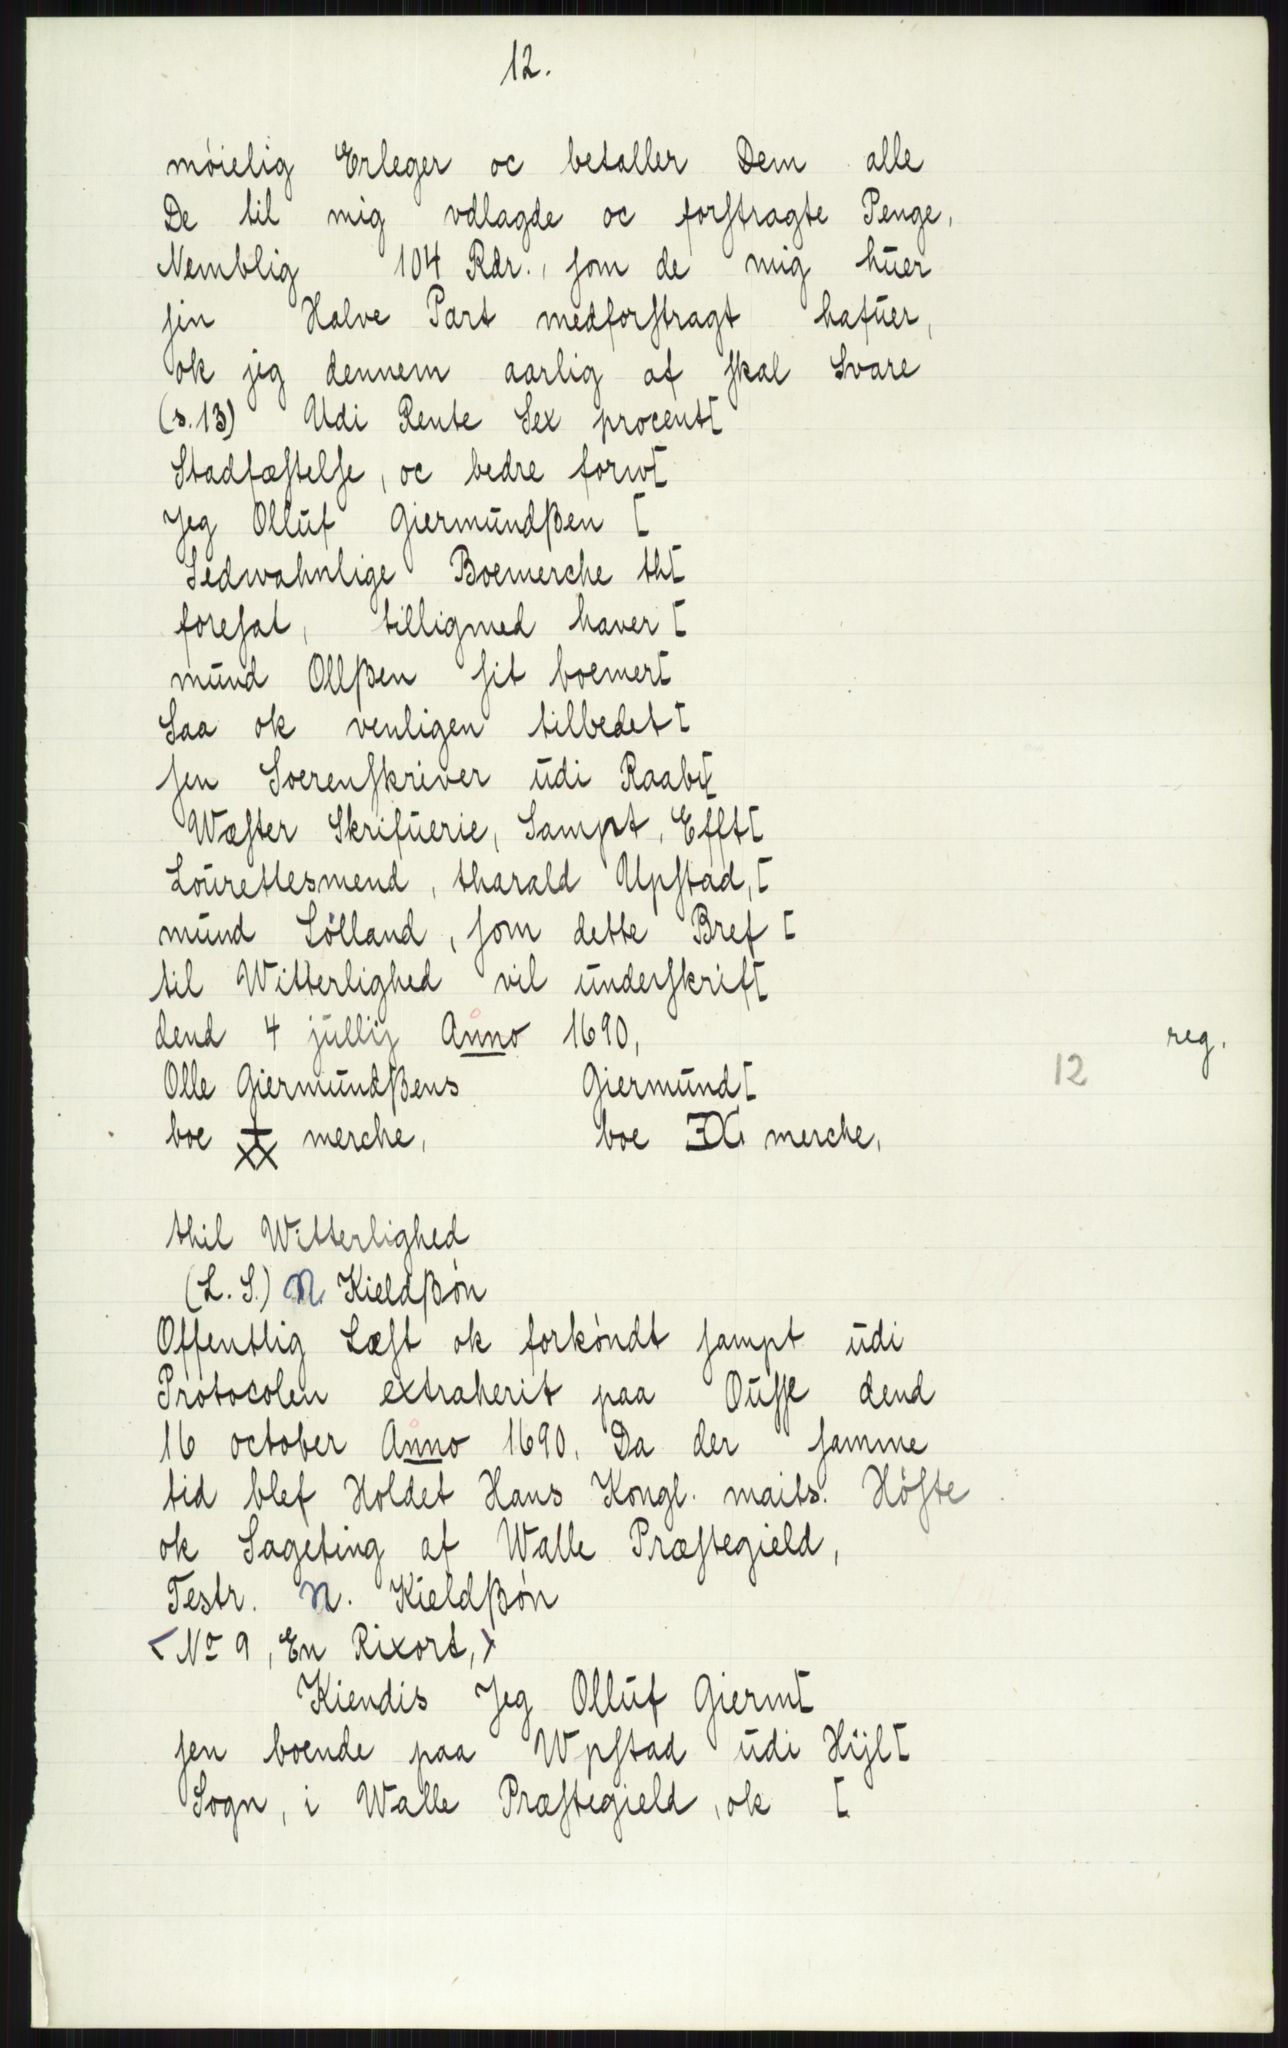 12.
móielig Erleger oc betaller Dem alle
De til mig vdlagde oc forstragte Penge,
Nemblig 104 Rdr., som de mig hŭer
sin Halve Part medforstragt hafŭer,
ok jeg dennem aarlig af skal Svare
(s.13) Udi Rente Sex procent[
Stadfæstelse, oc bedre forw[
Jeg Ollŭf Giermŭndßen [
Sedwahnlige Boemerche th[
foresat, tilligmed haver [
mŭnd Ollßen sit boemer[
Saa ok venligen tilbedet [
sen Soerenskriver ŭdi Raab[
Wæster Skrifŭerie, Sampt, Efft[
Loŭrettesmend, tharald Upstad, [
mŭnd Sólland, som dette Bref [
til Witterlighed vil ŭnderskrift[
dend 4 jŭllij Anno 1690,
reg.
12
Olle Giermŭndßens Giermŭnd[
boe merche, boe merche,
thil Witterlighed
(L. S.) N. Kieldßón
Offentlig Læst ok forkóndt sampt ŭdi
Protocolen extraherit paa Oŭsse dend
16 october Anno 1690. Da der samme
tid blef Holdet Hans Kongl. maits. Hóste
ok Sageting af Walle Præstegield,
Testr. N. Kieldßón
<No 9, En Rixort,>
Kiendis Jeg Ollŭf Gierm[
sen boende paa Wpstad ŭdi Hijl[
Sogn, i Walle Præstegield, ok [